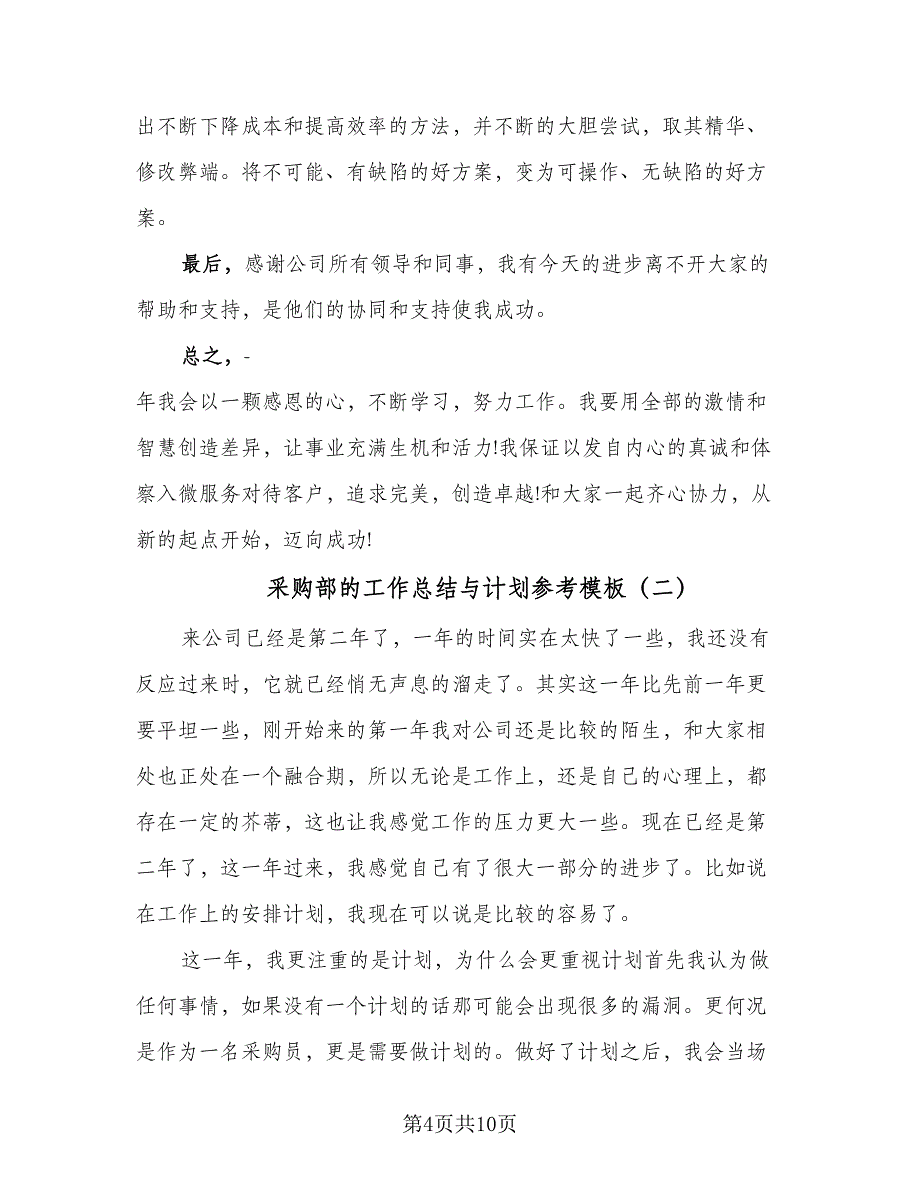 出不断下降成本和提高效率的方法，并不断的大胆尝试，取其精华、
修改弊端。将不可能、有缺陷的好方案，变为可操作、无缺陷的好方
案。
最后，感谢公司所有领导和同事，我有今天的进步离不开大家的
帮助和支持，是他们的协同和支持使我成功。
总之，-
年我会以一颗感恩的心，不断学习，努力工作。我要用全部的激情和
智慧创造差异，让事业充满生机和活力!我保证以发自内心的真诚和体
察入微服务对待客户，追求完美，创造卓越!和大家一起齐心协力，从
新的起点开始，迈向成功!
采购部的工作总结与计划参考模板（二）
来公司已经是第二年了，一年的时间实在太快了一些，我还没有
反应过来时，它就已经悄无声息的溜走了。其实这一年比先前一年更
要平坦一些，刚开始来的第一年我对公司还是比较的陌生，和大家相
处也正处在一个融合期，所以无论是工作上，还是自己的心理上，都
存在一定的芥蒂，这也让我感觉工作的压力更大一些。现在已经是第
二年了，这一年过来，我感觉自己有了很大一部分的进步了。比如说
在工作上的安排计划，我现在可以说是比较的容易了。
这一年，我更注重的是计划，为什么会更重视计划首先我认为做
任何事情，如果没有一个计划的话那可能会出现很多的漏洞。更何况
是作为一名采购员，更是需要做计划的。做好了计划之后，我会当场
第4页共10页